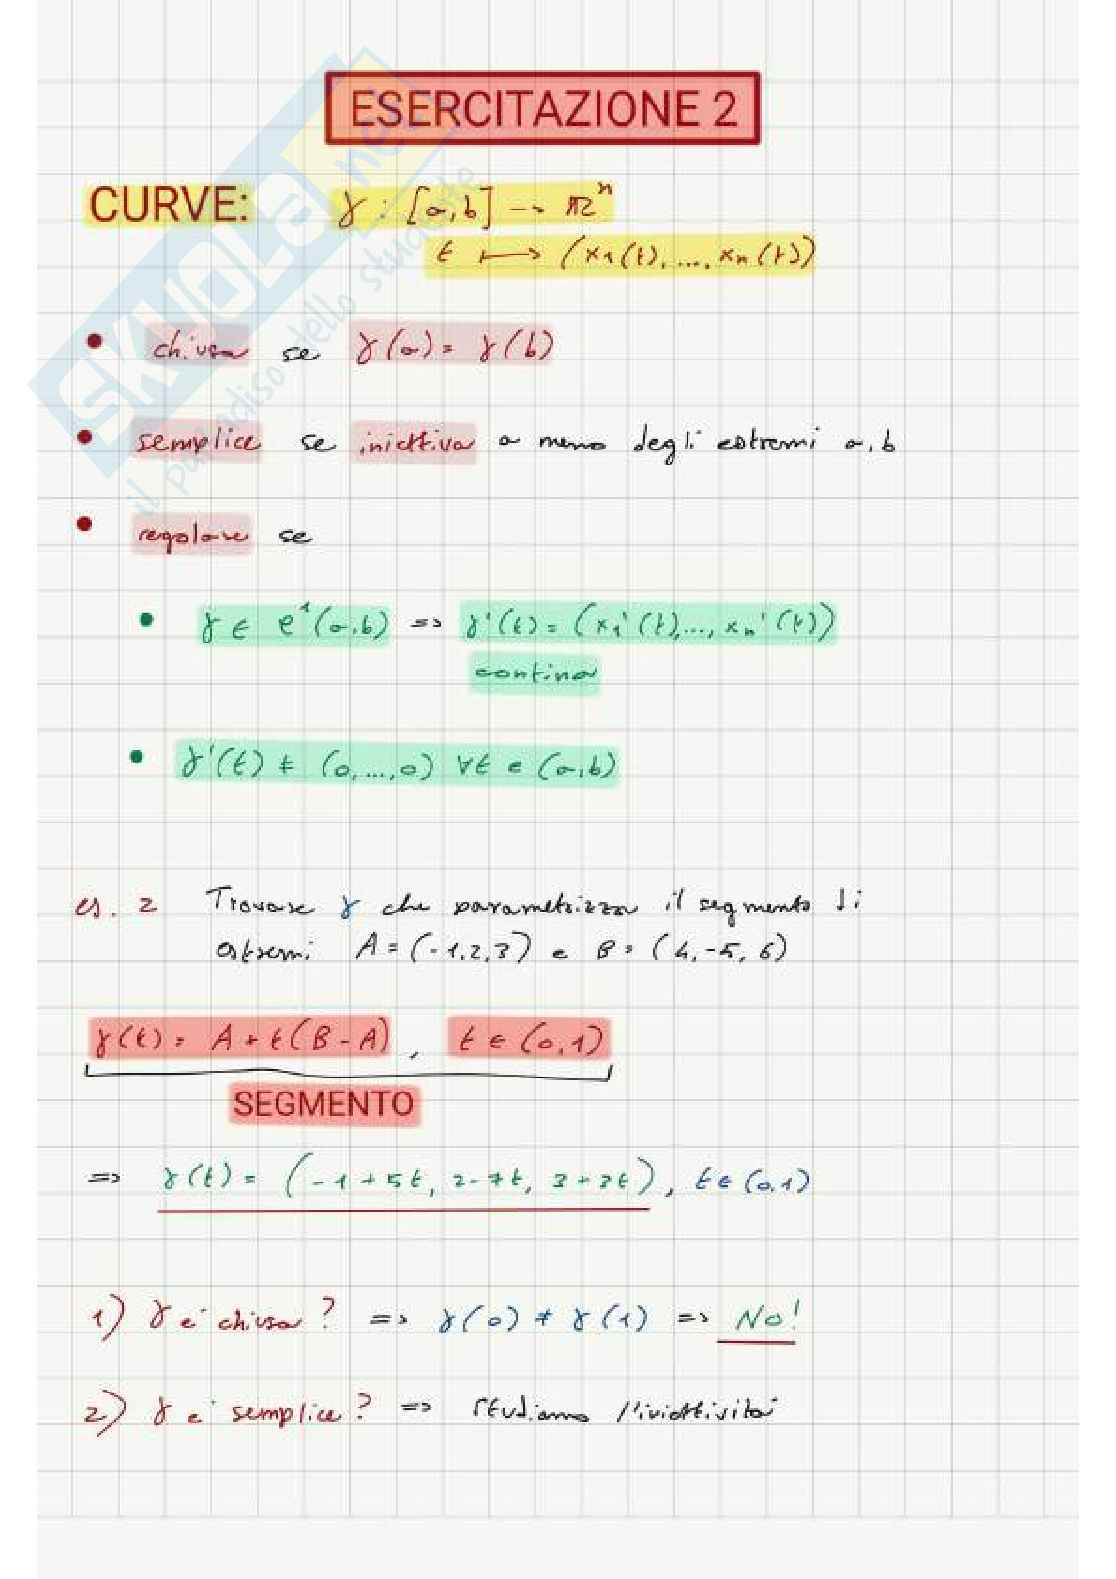 ESERCITAZIONE 2
CURVE: γ : [a,b] → ℝⁿ
t ⟼ (x₁(t),...,xₙ(t))
• chiusa se γ(a) = γ(b)
• semplice se iniettiva a meno degli estremi a,b
• regolare se
• γ ∈ C¹(a,b) => γ'(t) = (x₁'(t),...,xₙ'(t))
continua
• γ'(t) ≠ (0,...,0) ∀t ∈ (a,b)
es. 2 Trovare γ che parametrizza il segmento di
estremi A = (-1,2,3) e B = (4,-5,6)
γ(t) = A + t(B - A), t ∈ (0,1)
SEGMENTO
=> γ(t) = (-1+5t, 2-7t, 3+3t), t ∈ (0,1)
1) γ e' chiusa? => γ(0) ≠ γ(1) => No!
2) γ e' semplice? => studiamo l'iniettività
SKUOLA.net
il paradiso dello studente